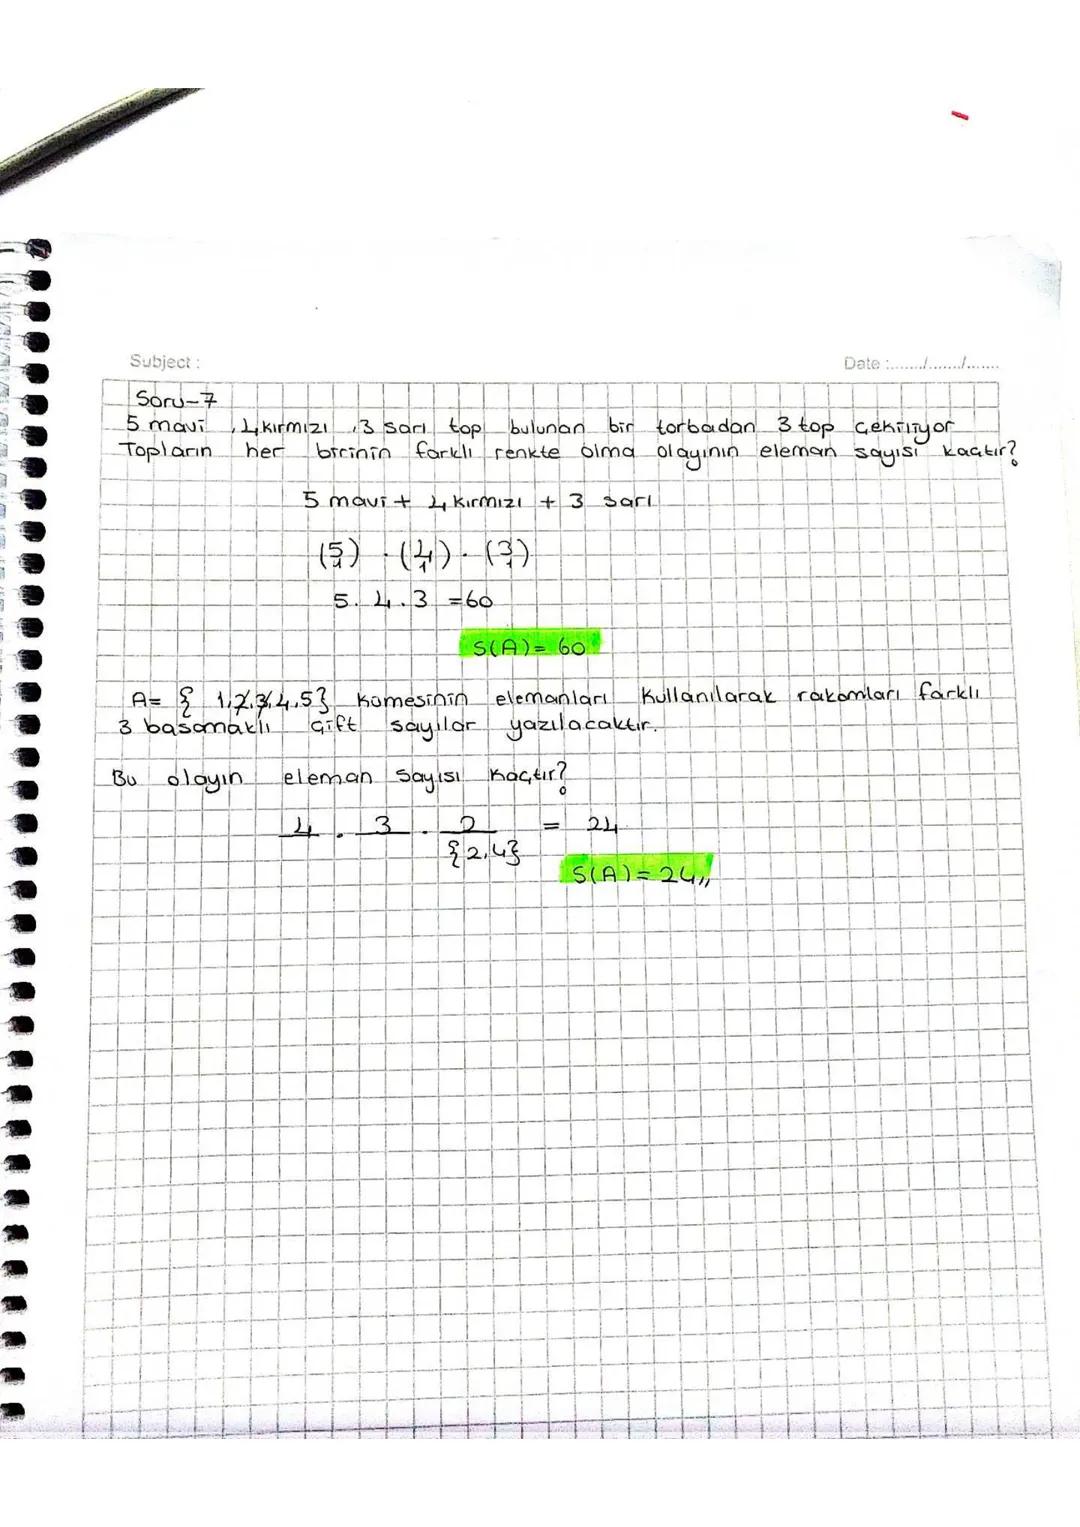 Subject :
Date :......../......../........
Soru-7
5 mavi , 4 kırmızı , 3 sarı top bulunan bir torbadan 3 top çekiliyor
Topların her birinin farklı renkte olma olayının eleman sayısı kaçtır?
5 mavi + 4 kırmızı + 3 sarı
(5 1) . (4 1) . (3 1)
5. 4. 3 =60
S(A)= 60
A= { 1,2,3,4,5} kümesinin elemanları kullanılarak rakamları farklı
3 basamaklı çift sayılar yazılacaktır.
Bu olayın eleman sayısı kaçtır?
4 . 3 . 2 = 24
{2,4}
S(A)= 24,,